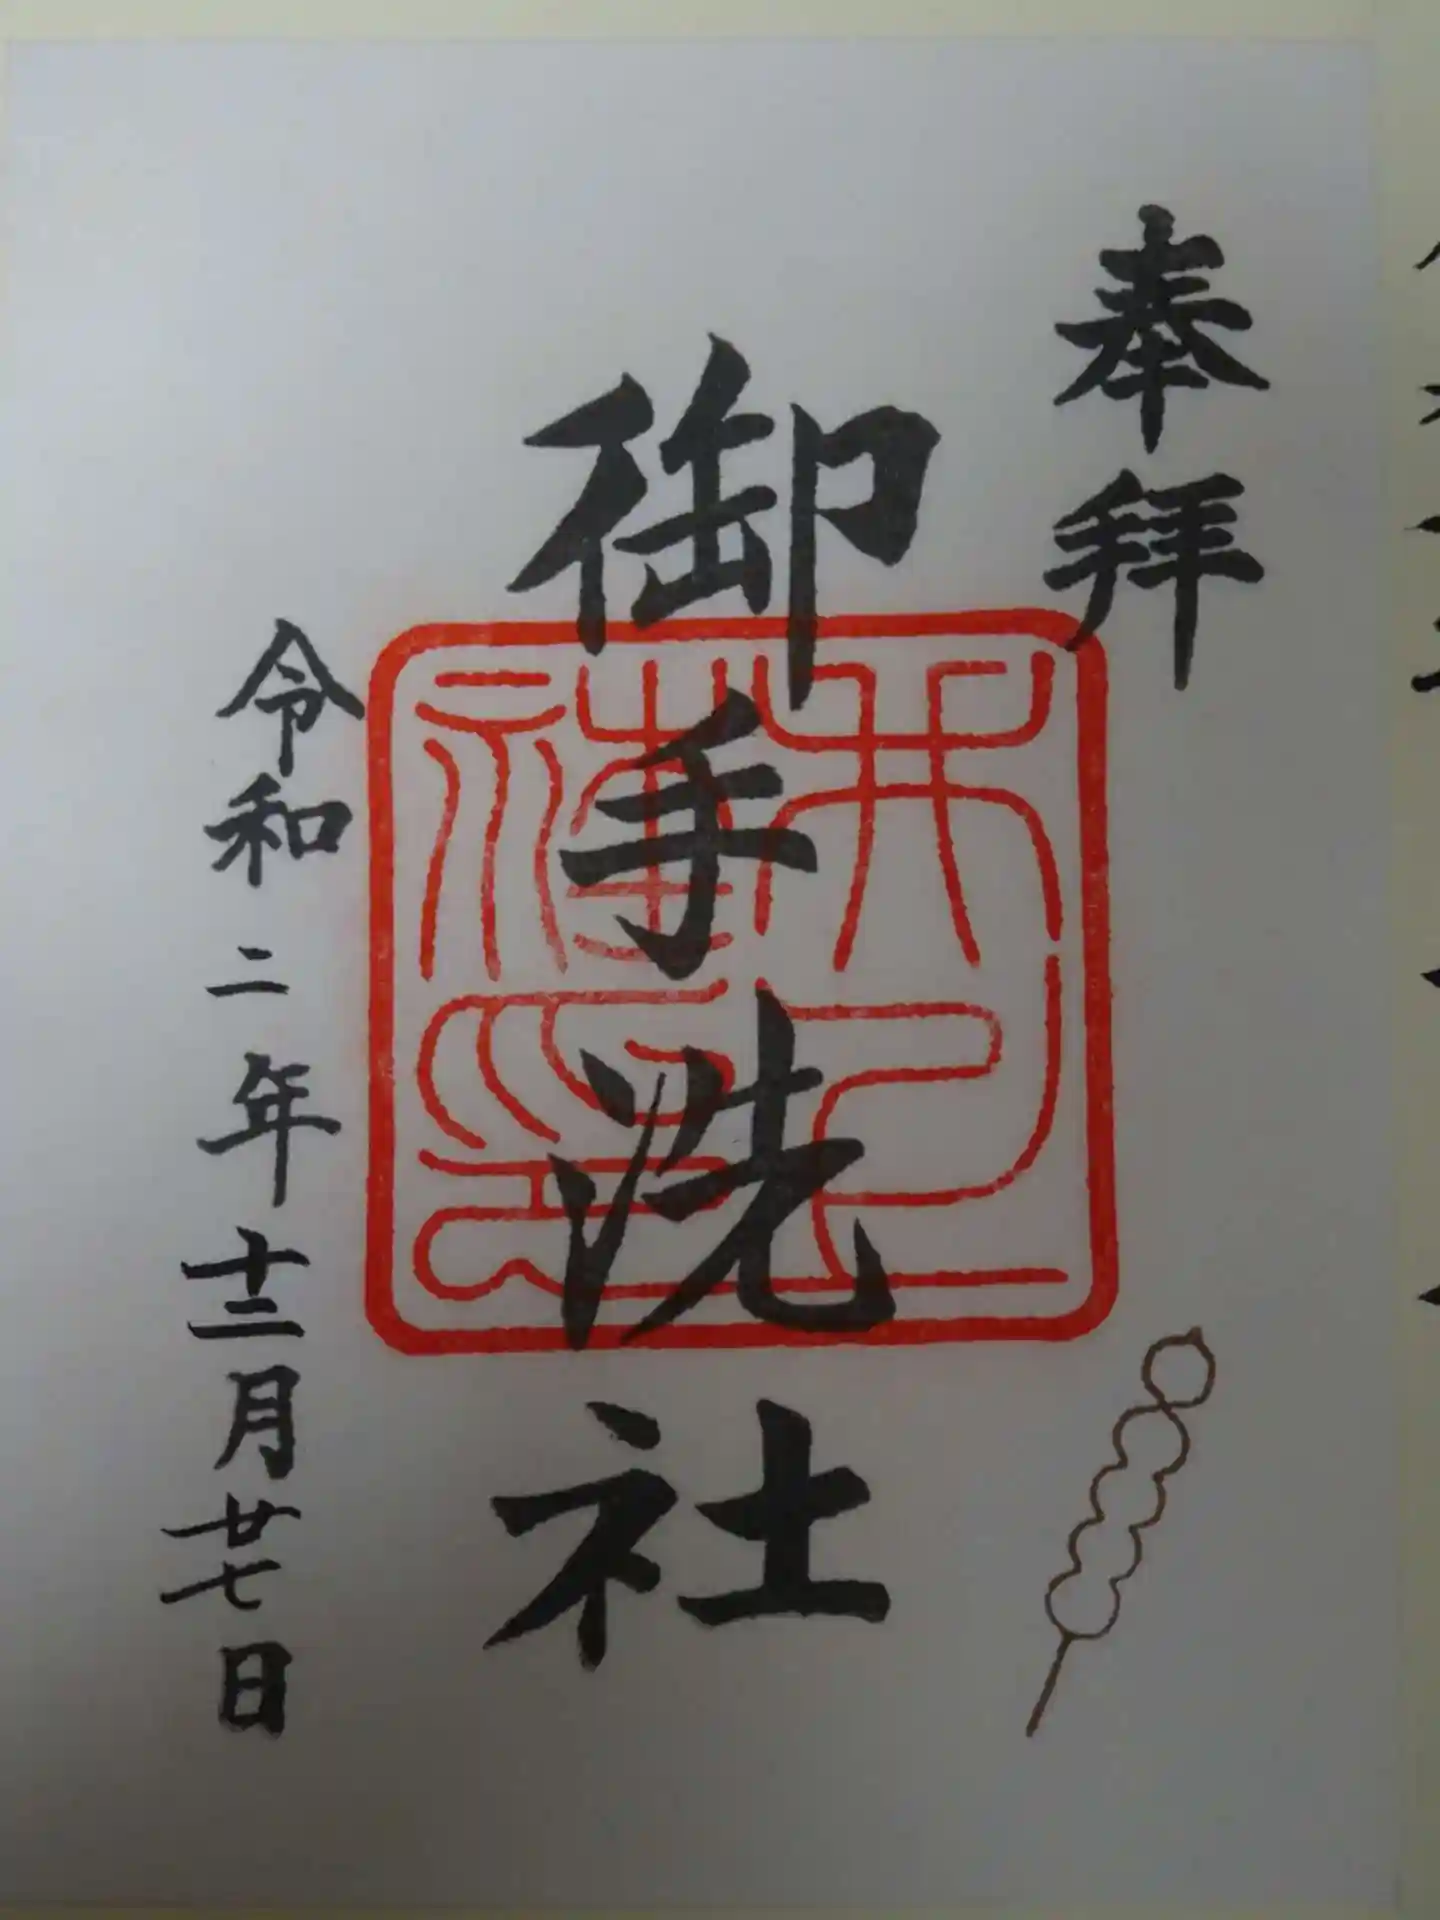 奉拝
御手洗社
令和二年十二月廿七日